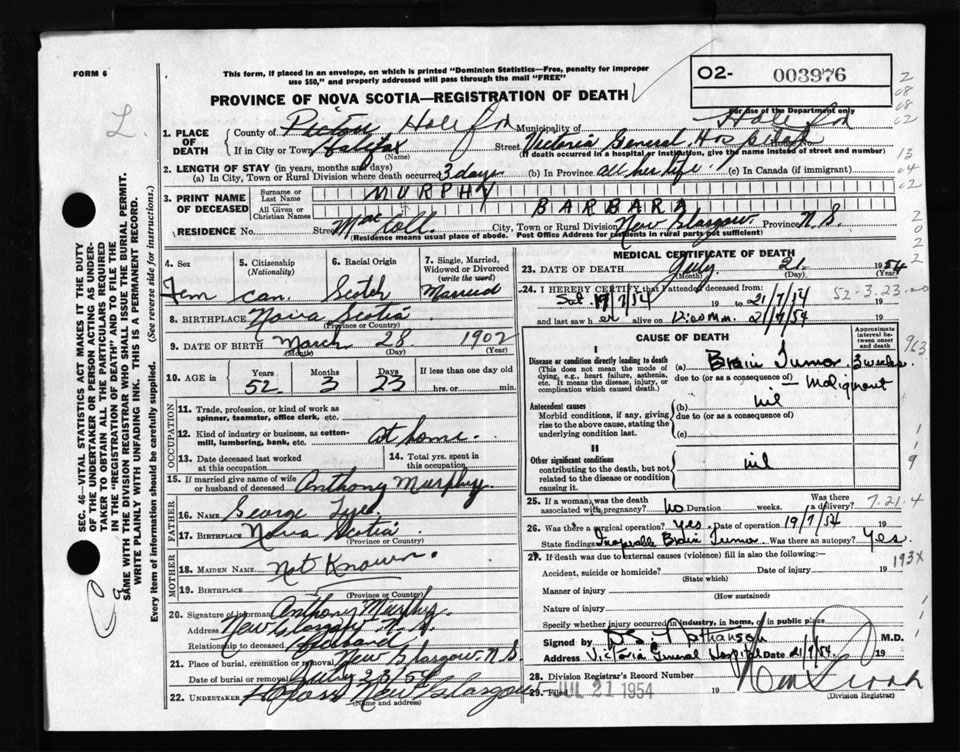 FORM 6
This form, if placed in an envelope, on which is printed "Dominion Statistics—Free, penalty for improper
use $50," and properly addressed will pass through the mail "FREE"
O2- 003976
For use of the Department only
PROVINCE OF NOVA SCOTIA—REGISTRATION OF DEATH
1. PLACE OF DEATH
County of Pictou Halifax Municipality of Halifax
If in City or Town Halifax (Name) Street Victoria General Hospital House No.
(If death occurred in a hospital or institution, give the name instead of street and number)
2. LENGTH OF STAY (in years, months and days)
(a) In City, Town or Rural Division where death occurred 3 days (b) In Province all her life (c) In Canada (if immigrant)
3. PRINT NAME OF DECEASED
Surname or Last Name MURPHY
All Given or Christian Names BARBARA
RESIDENCE No. Street MacColl City, Town or Rural Division New Glasgow Province N.S.
(Residence means usual place of abode. Post Office Address for residents in rural parts not sufficient)
4. Sex Fem
5. Citizenship (Nationality) Can.
6. Racial Origin Scotch
7. Single, Married, Widowed or Divorced (write the word) Married
8. BIRTHPLACE Nova Scotia
(Province or Country)
9. DATE OF BIRTH March 28 1902
(Month) (Day) (Year)
10. AGE in Years 52 Months 3 Days 23 If less than one day hrs. or min.
OCCUPATION
11. Trade, profession, or kind of work as spinner, teamster, office clerk, etc.
12. Kind of industry or business, as cotton-mill, lumbering, bank, etc. at home.
13. Date deceased last worked at this occupation
14. Total yrs. spent in this occupation
15. If married give name of wife or husband of deceased Anthony Murphy
FATHER
16. Name George
17. Birthplace Nova Scotia
(Province or Country)
MOTHER
18. Maiden Name Not Known
19. Birthplace
(Province or Country)
20. Signature of informant Anthony Murphy
Address New Glasgow N.S.
Relationship to deceased Husband
21. Place of burial, cremation or removal New Glasgow N.S.
Date of burial or removal July 23/54
22. Undertaker New Glasgow
(Name and address)
MEDICAL CERTIFICATE OF DEATH
23. DATE OF DEATH July 21 1954
(Month) (Day) (Year)
24. I HEREBY CERTIFY that I attended deceased from:
Sat 17/7/54 19 to 21/7/54 19
and last saw her alive on 12:00 mn. 21/7/54 19
52-3.23.00
CAUSE OF DEATH
Approximate interval between onset and death
I
Disease or condition directly leading to death
(This does not mean the mode of dying, e.g., heart failure, asthenia, etc. It means the disease, injury, or complication which caused death.)
(a) Brain Tumor 3 weeks
due to (or as a consequence of) - Malignant
Antecedent causes
Morbid conditions, if any, giving rise to the above cause, stating the underlying condition last.
(b) nil
due to (or as a consequence of)
(c)
II
Other significant conditions
contributing to the death, but not related to the disease or condition causing it.
nil
25. If a woman, was the death associated with pregnancy? No Duration weeks. Was there a delivery?
7-21-4
26. Was there a surgical operation? Yes. Date of operation 19/7/54 19
State findings Inoperable Brain Tumor Was there an autopsy? Yes
193X
27. If death was due to external causes (violence) fill in also the following:—
Accident, suicide or homicide? Date of injury 19
(State which)
Manner of injury
(How sustained)
Nature of injury
Specify whether injury occurred in industry, in home, or in public place
Signed by Nathanson M.D.
Address Victoria General Hospital Date 21/7/54 19
28. Division Registrar's Record Number
29. Filed JUL 21 1954 19
(Division Registrar)
SEC. 46—VITAL STATISTICS ACT MAKES IT THE DUTY
OF THE UNDERTAKER OR PERSON ACTING AS UNDER-
TAKER TO OBTAIN ALL THE PARTICULARS REQUIRED
IN THE "REGISTRATION OF DEATH" AND TO FILE THE
SAME WITH THE DIVISION REGISTRAR WHO SHALL ISSUE THE BURIAL PERMIT.
WRITE PLAINLY WITH UNFADING INK. THIS IS A PERMANENT RECORD.
Every item of information should be carefully supplied. (See reverse side for instructions.)